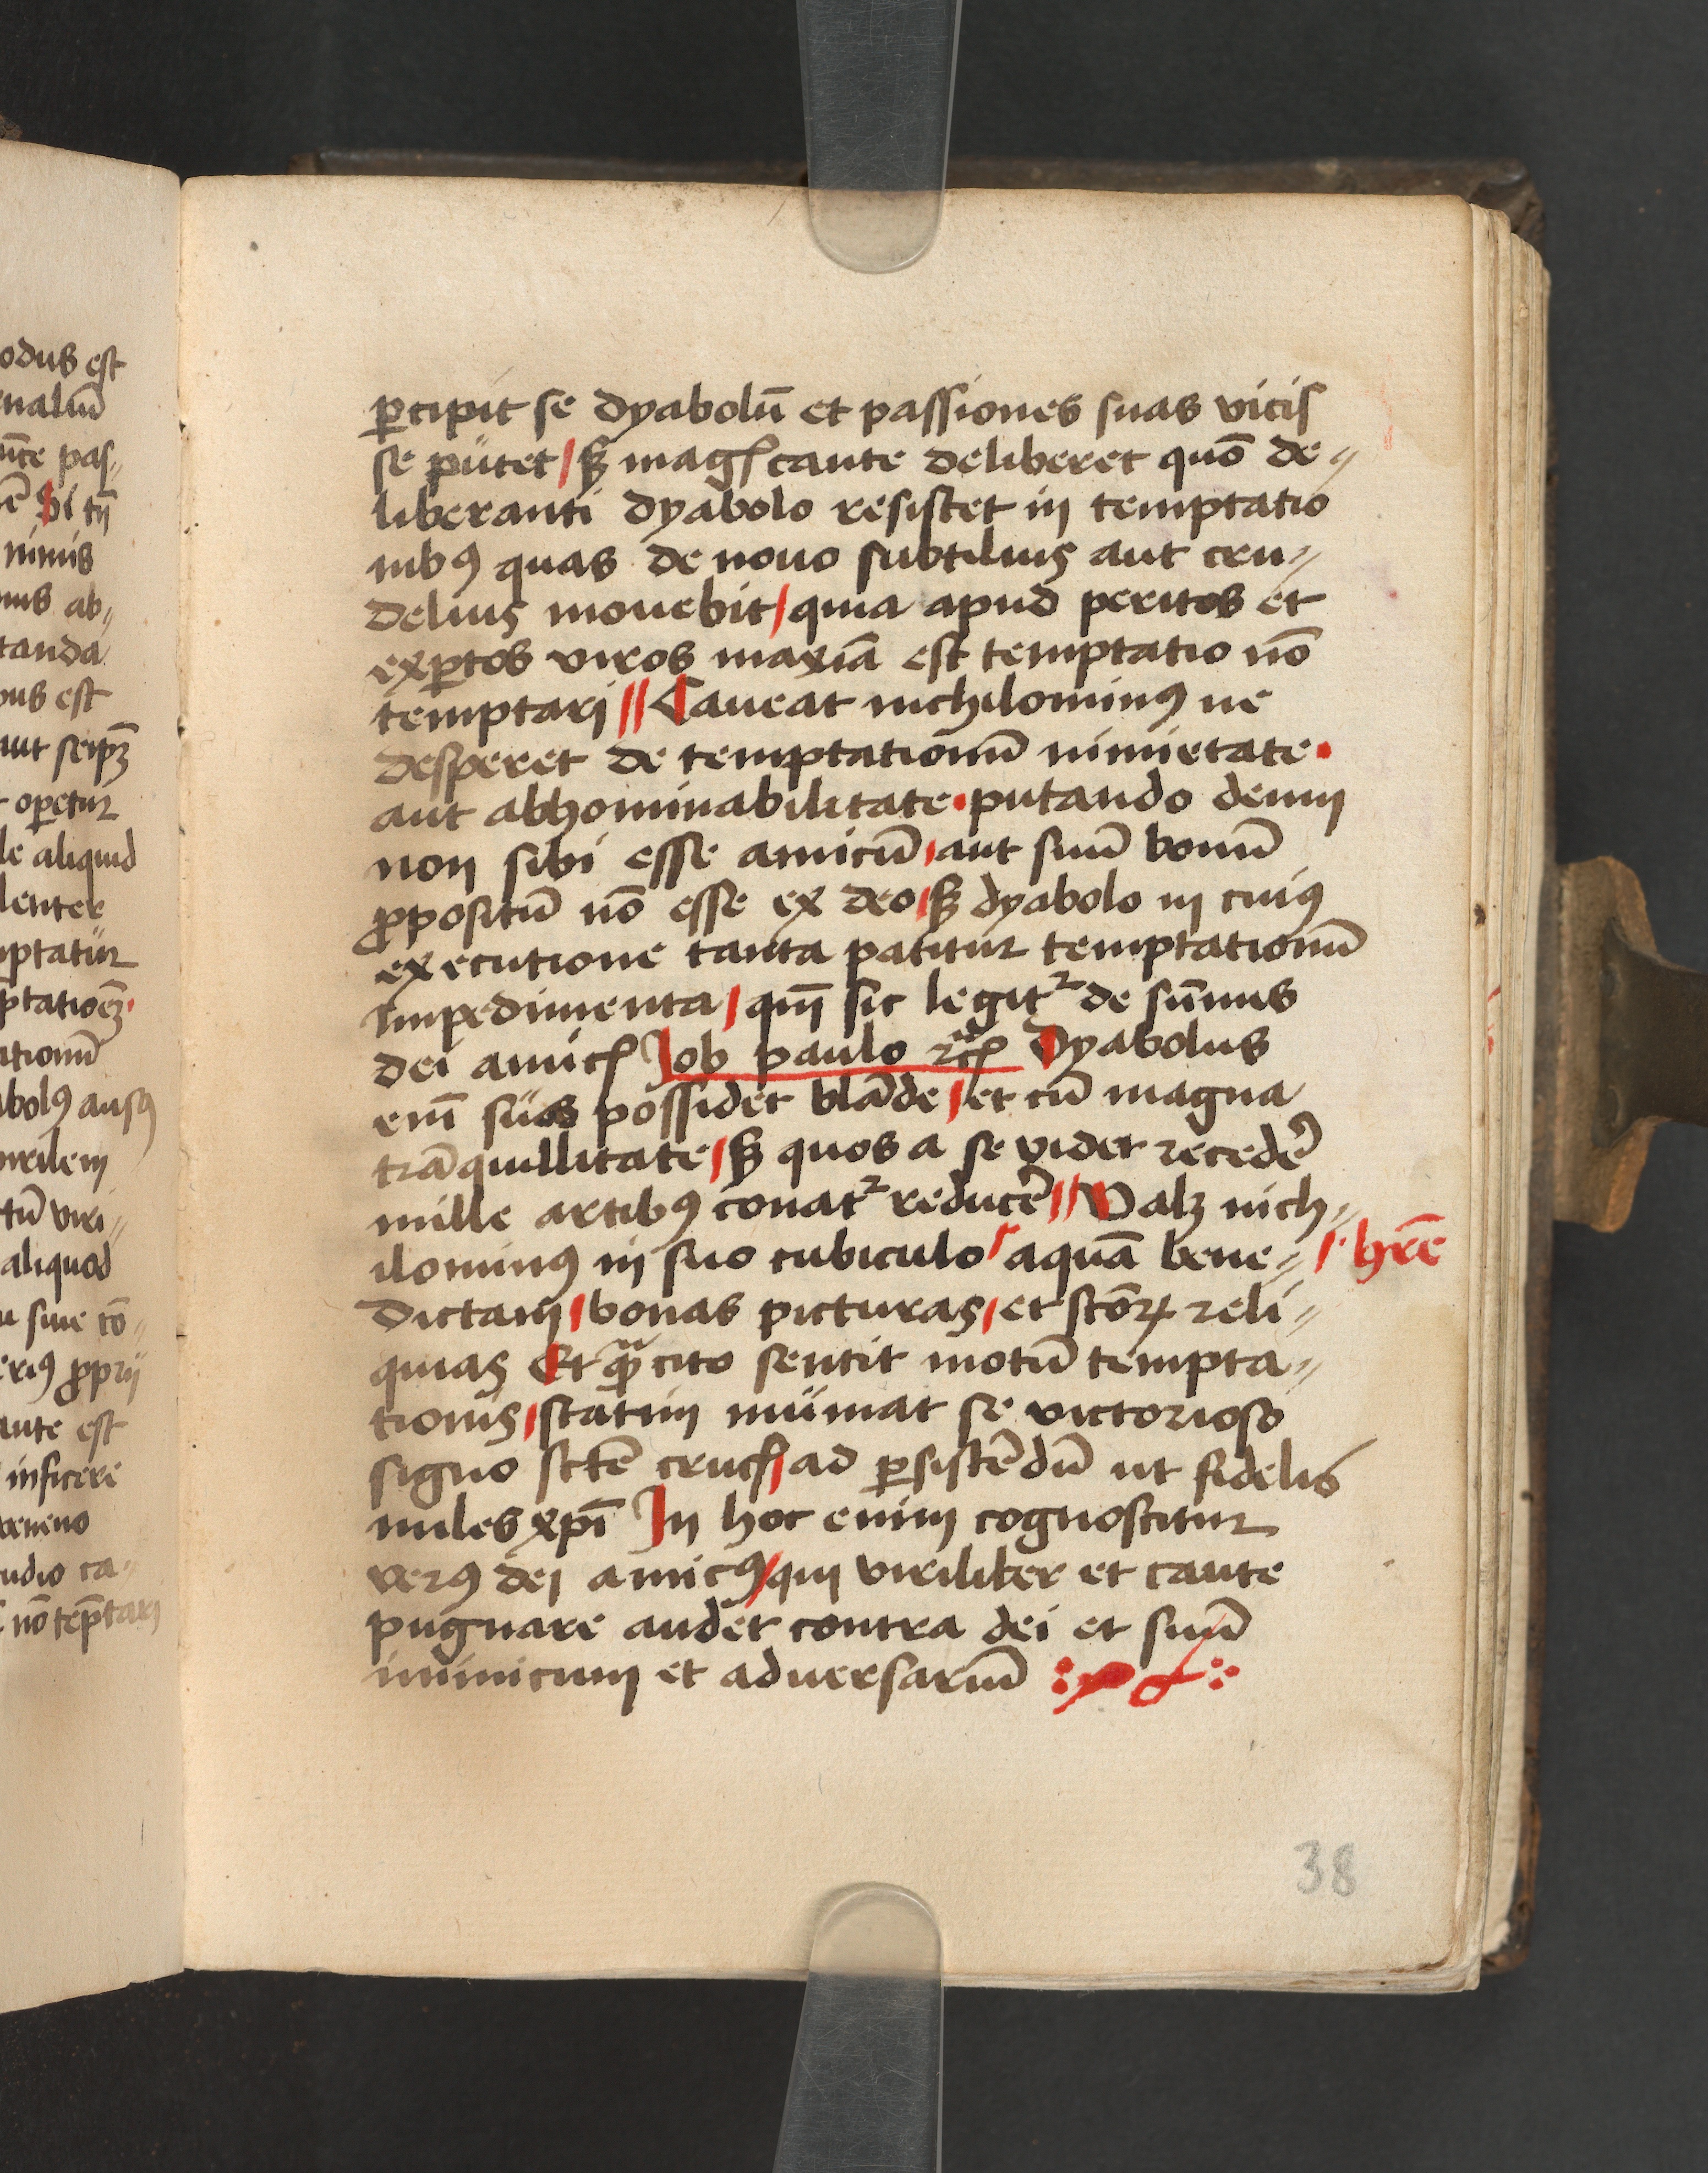 odus est
naliū
ūte pas„
ē Si tn̄
nimis
nus ab„
tanda
ous est
aut seipꝫ
operetur
le aliquid
lenter
mptatur
ptatioēꝫ
ationū
abolꝰ ausꝰ
virilem
tū viri„
aliquod
siue cō„
eriꝰ ꝓprij
ante est
inficere
veneno
udio ca„
nō tēptari
ꝑcipit se dyabolū et passiones suas vicis
se putet / sꝫ magꝭ caute deliberet quō de„
liberanti dyabolo resistet in temptatio
nibꝰ quas de nouo subtilius aut cru„
delius mouebit / quia apud peritos et
exꝑtos viros maxīa est temptatio nō
temptari // Caueat nichilominꝰ ne
desperet de temptationū nimietate •
aut abhominabilitate • putando deum
non sibi esse amicū / aut suū bonū
ꝓpositū nō esse ex deo / sꝫ dyabolo in cuiꝰ
executione tanta patitur temptationū
impedimenta / qm̄ sic legitᷣ de sūmis
dei amicꝭ Job paulo ⁊cꝭ Dyabolus
enī suos possidet blāde / et cū magna
trāquillitate / sꝫ quos a se videt recedē
mille artibꝰ conatᷣ reducē // Valꝫ nich„
ilominꝰ in suo cubiculo / aquā bene„ / hr̄e
dictam / bonas picturas / et sctōꝝ reli„
quias Et qᷓꝫ cito sentit motū tempta„
tionis / statim muniat se victorioso
signo sctē crucꝭ / ad ꝑsistēdū ut fidelis
miles xp̄i In hoc enim cognoscitur
verꝰ dei amicꝰ / qui viriliter et caute
pugnare audet contra dei et suū
inimicum et aduersariū
38